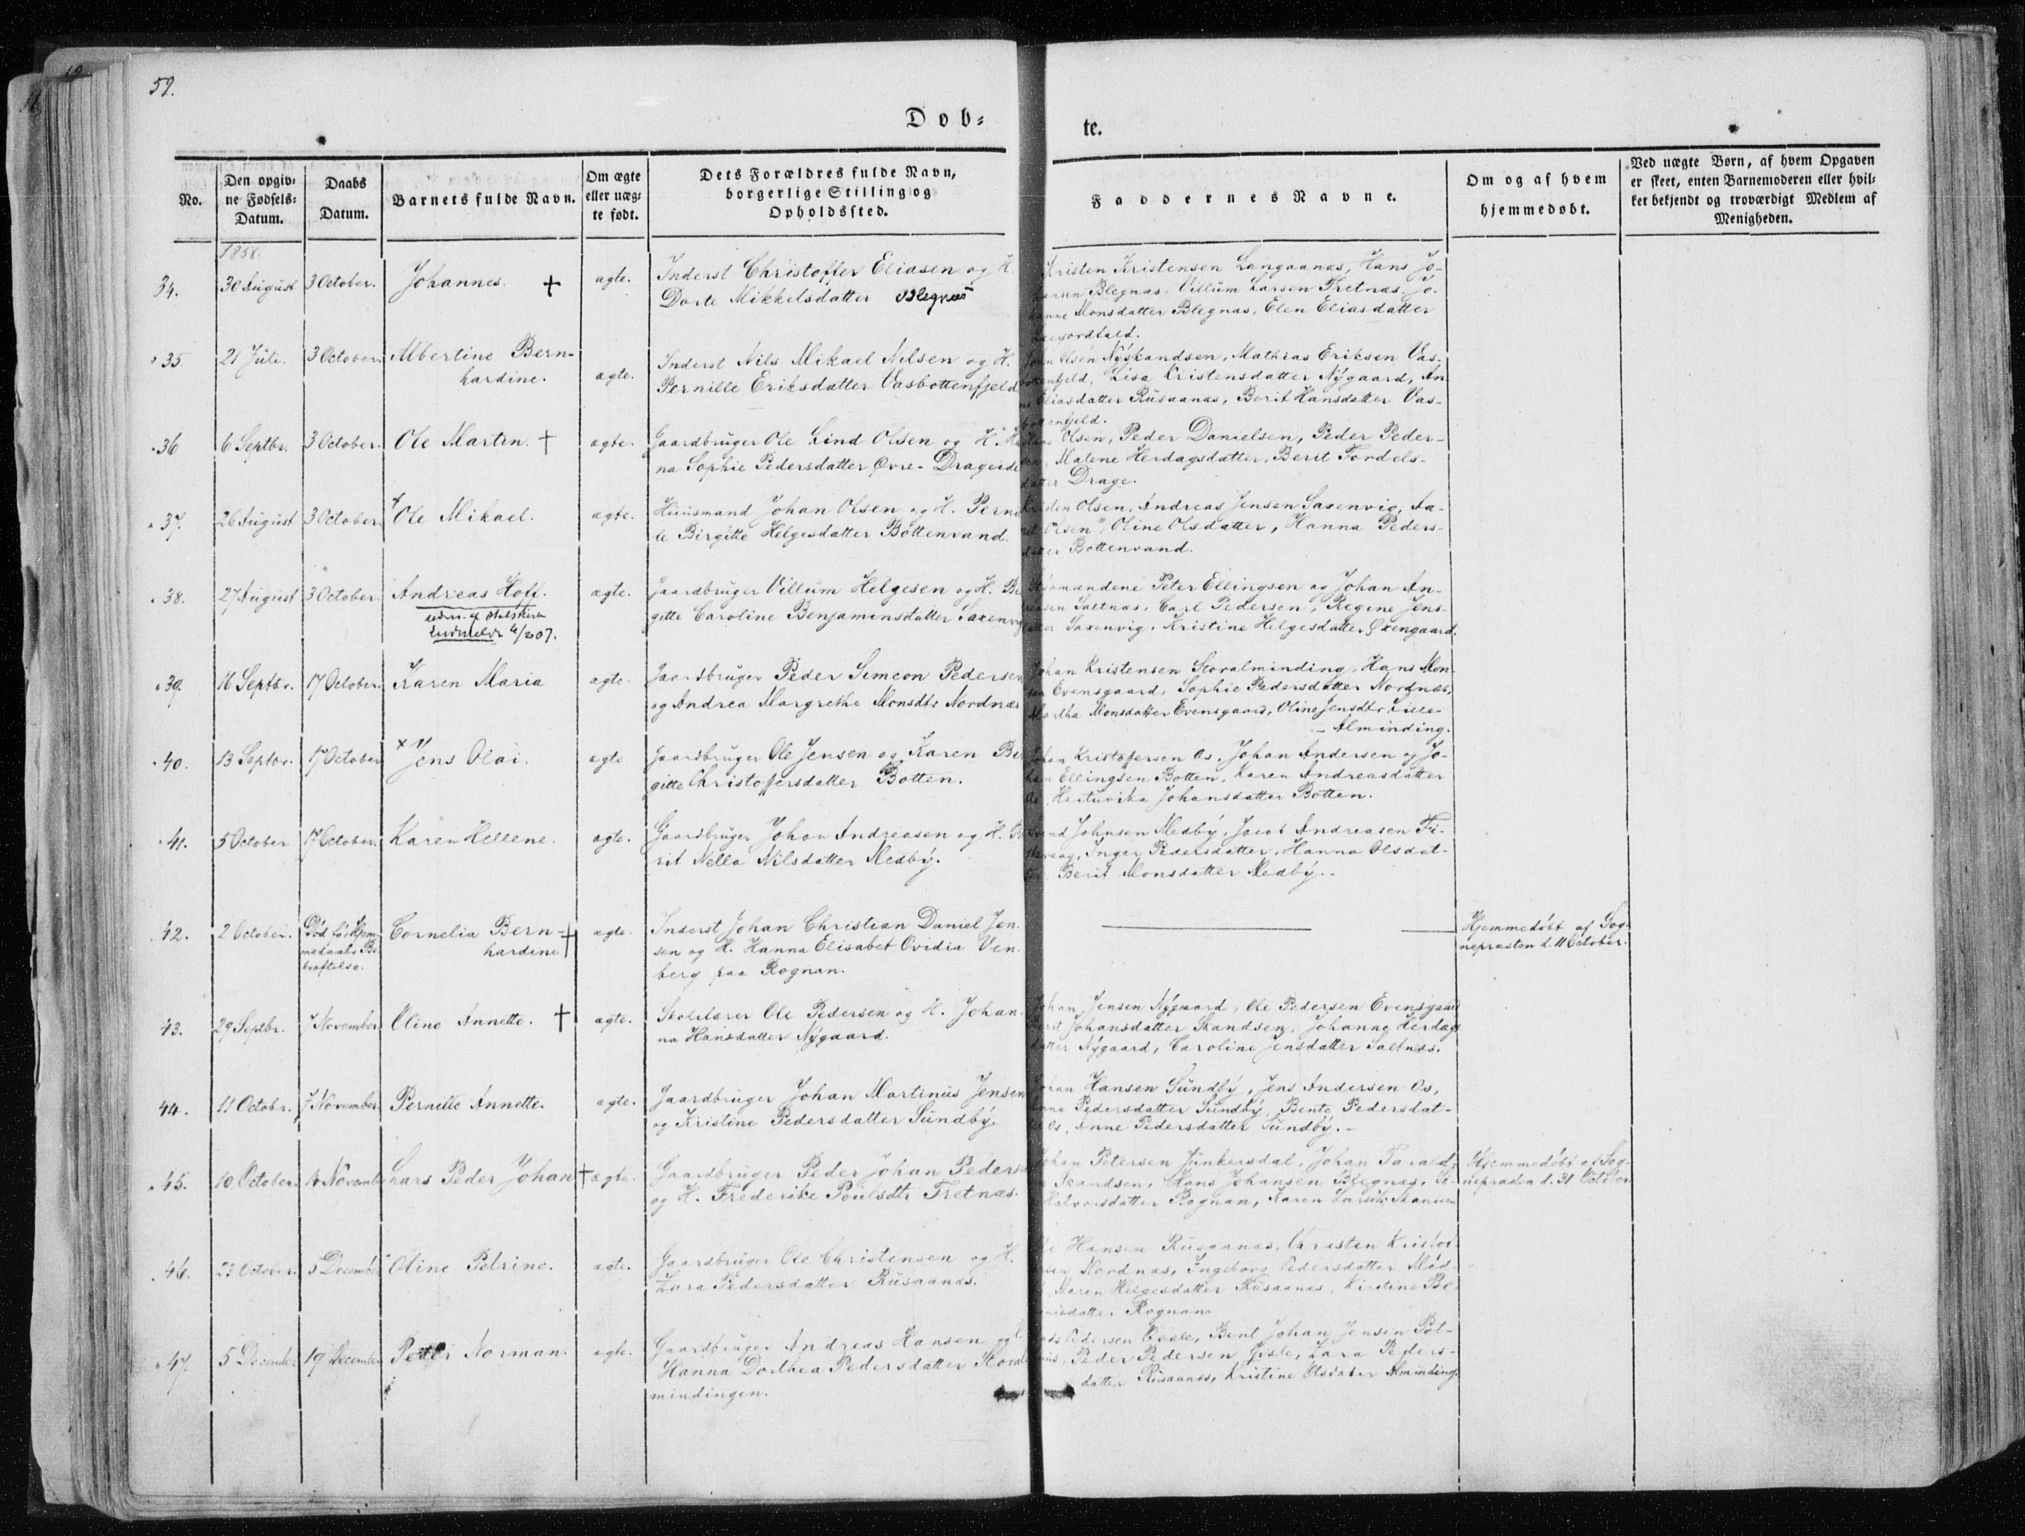 59.
Døb=
te.
No.
Den opgiv=
ne Fødsels=
Datum.
Daabs
Datum.
Barnets fulde Navn.
Om ægte
eller uæg=
te født.
Dets Forældres fulde Navn,
borgerlige Stilling og
Opholdssted.
Faddernes Navne.
Om og af hvem
hjemmedøbt.
Ved uægte Børn, af hvem Opgaven
er skeet, enten Barnemoderen eller hvil=
ket bekjendt og troværdigt Medlem af
Menigheden.
1858.
34. 30 August 3 October. Johannes. † ægte.
Inderst Christoffer Eliasen og H.
Dorte Mikkelsdatter Blegnæs
Kristen Kristensen Langaanæs, Hans Jo-
hansen Blegnæs, Villum Larsen Fretnæs, Jo-
hanne Monsdatter Blegnæs, Elen Eliasdatter
35. 21 Juli. 3 October. Albertine Bern-
hardine. ægte.
Inderst Nils Mikael Nilsen og H.
Pernille Eriksdatter Vasbottenfjeld
John Olsen Nyskandsen, Mathias Eriksen Vas-
bottenfjeld, Lisa Kristensdatter Nygaard, An
Eliasdatter Rusaanæs, Berit Hansdatter Vas-
bottenfjeld.
36 6 Septbr. 3 October. Ole Martin. † ægte.
Gaardbruger Ole Lind Olsen og H. Han
na Sophie Pedersdatter Øvre-Drageide
Olsen, Peder Danielsen, Peder Peder-
sen, Malene Herdagsdatter, Berit Tordels-
datter Drage.
37. 26 August 3 October Ole Mikael. ægte.
Huusmand Johan Olsen og H. Pernil
le Birgitte Helgesdatter Bottenvand.
Kristen Olsen, Andreas Jensen Saxenvig, Aa-
Olsen, Oline Olsdatter, Hanna Peders-
datter Bottenvand.
38. 27 August 3 October. Andreas Hoff. ægte.
4/2 07.
Gaardbruger Villum Helgesen og H. Bir
gitte Caroline Benjaminsdatter Saxenvig
Styrmændene Peter Ellingsen og Johan An-
dreasen Saltnæs, Carl Pedersen, Regine Jens-
datter Saxenvig, Kristine Helgesdatter Øxengaard.
39. 16 Septbr. 17 October. Karen Maria ægte.
Gaardbruger Peder Simeon Pedersen
og Andrea Margrethe Monsdtr Nordnæs
Johan Kristensen Storalminding, Hans Mon-
sen Evensgaard, Sophie Pedersdatter Nordnæs,
Martha Monsdatter Evensgaard, Oline Jensdtr. Lille-
-Alminding.
40. 13 Septbr. 17 October Jens Olai. ægte.
Gaardbruger Ole Jensen og Karen Bir
gitte Christoffersdatter Botten.
Johan Kristofersen Os, Johan Andersen og Jo-
han Ellingsen Botten, Karen Andreasdatter
Os, Hartuvika Johansdatter Botten.
41. 5 October 17 October. Karen Hellene. ægte.
Gaardbruger Johan Andreasen og H. Be
rit Nella Nilsdatter Medby.
Johnsen Medby, Jacob Andreasen Fi-
skevaag, Inger Pedersdatter, Hanna Olsdat-
ter, Berit Monsdatter Medby.
42. 2 October. Død før Hjem-
medaabs Be-
kræftelse. Cornelia Bern-
hardine † ægte.
Inderst Johan Christian Daniel Jen-
sen og H. Hanna Elisabet Ovidia Ven-
berg paa Rognan.
Hjemmedøbt af Sog-
nepræsten d. 11 October.
43. 29 Septbr. 7 November. Oline Annette. † ægte.
Skolelærer Ole Pedersen og H. Johan-
na Hansdatter Nygaard.
Johan Jensen Nygaard, Ole Pedersen Evensgaard
Berit Johansdatter Skandsen, Johanna Herdags
datter Nygaard, Caroline Jensdatter Saltnæs.
44. 11 Octobr. 7 November Pernille Annette. ægte.
Gaardbruger Johan Martinus Jensen
og Kristine Pedersdatter Sundby.
Johan Hansen Sundby, Jens Andersen Os,
Anna Pedersdatter Sundby, Bente Pedersdat-
ter Os, Anne Pedersdatter Sundby.
45. 10 October. 14 Novemb. Lars Peder Johan † ægte.
Gaardbruger Peder Johan Peders
og H. Frederike Poulsdtr Fretnæs.
Johan Petersen Junkersdal, Johan
Skandsen, Hans Johansen Blegnæs,
Halvorsdatter Rognan, Karen Larsdtr
Hjemmedøbt af Sog-
nepræsten d. 31 October
46. 23 October. 5 Decemb. Oline Petrine. ægte.
Gaardbruger Ole Christensen og H.
Lara Pedersdatter Rusaanæs.
Hansen Rusaanæs, Christen Kristof-
Nordnæs, Ingeborg Pedersdatter Med-
Maren Helgesdatter Rusaanæs, Kirstine
datter Rognan
47. 5 December 19 December Peder Norman. ægte.
Gaardbruger Andreas Hansen og H.
Hanna Dorthea Pedersdatter Storal-
mindingen.
Pedersen, Bent Johan Jensen Pot-
hus, Peder Pedersen, Lara Peders-
datter Rusaanæs, Kristine Olsdatter Alminding.